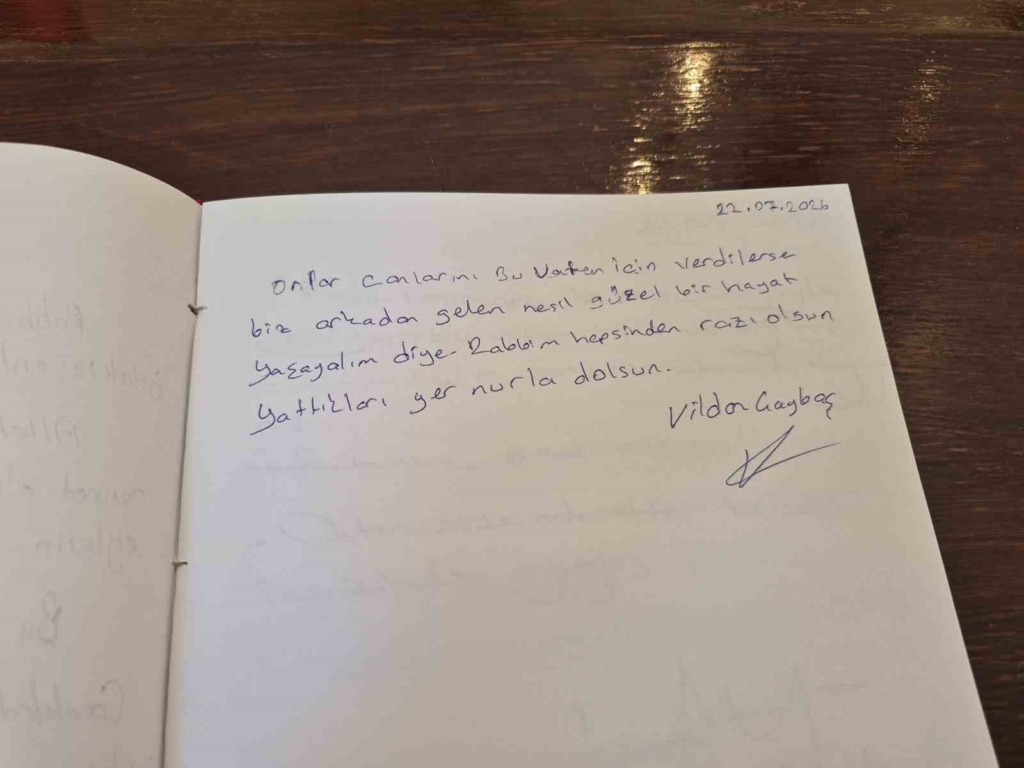 22.07.2026
Onlar canlarını Bu Vatan için verdilerse
biz arkadan gelen nesil güzel bir hayat
yaşayalım diye. Rabbim hepsinden razı olsun
yattıkları yer nurla dolsun.
Vildan